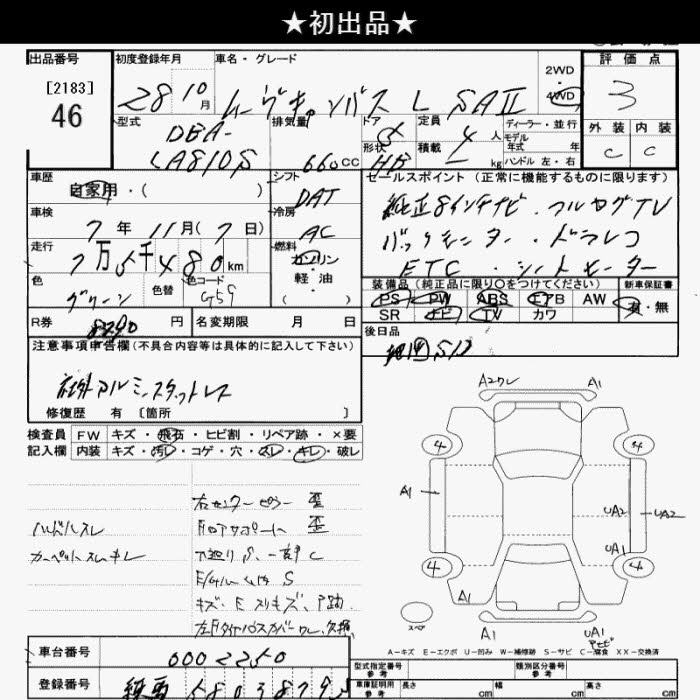 ★初出品★
出品番号
[2183]
46
初度登録年月
28 10月
車名・グレード
ムーヴキャンバス L SAⅡ
2WD
4WD
評価点
3
外装 内装
C C
型式
DBA-
LA810S
排気量
660cc
ドア
形状
定員
4人
積載
kg
ディーラー・並行
モデル
年式 年
ハンドル 左・右
車歴
自家用・( )
シフト
DAT
車検
7年11月(7日)
冷房
AC
走行
7万5千480km
燃料
ガソリン
軽・油
( )
色
グリーン
色替
色コード
G59
R券
8290円
名変期限 月 日
セールスポイント (正常に機能するものに限ります)
純正8インチナビ・フルセグTV
バックモニター・ドラレコ
ETC・シートヒーター
装備品(純正品に限り〇をつけてください)
新車保証書
PS PW ABS エアB AW
有・無
SR ナビ TV カワ
後日品
注意事項申告欄(不具合内容等は具体的に記入して下さい)
社外アルミ、スタットレス
修復歴 有 〔箇所 〕
検査員
記入欄
FW キズ・飛石・ヒビ割・リペア跡・×要
内装 キズ・汚レ・コゲ・穴・スレ・キレ・破レ
右センターピラー 歪
ハンドルスレ
カーペットスレキレ
下廻りS、一部C
キズ・E
A2ワレ
A1
A1
UA2
UA2
UA1
A1
A1
UA1
4
4
4
4
スペア
A-キズ E-エクボ U-凹み W-補修跡 S-サビ C-腐食 XX-交換済
車台番号
0002250
登録番号
型式指定番号
参考
類別区分番号
参考
車庫証明用
参考
長さ cm
幅 cm
高さ cm